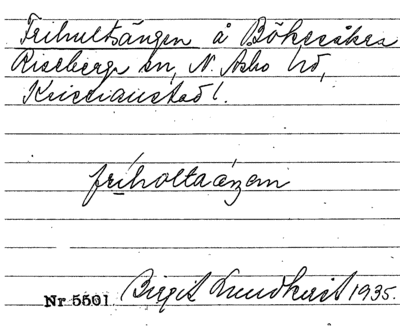 Frihultsängen å Bökesåkra
Riseberga sn, N. Åsbo hd,
Kristianstad l.
fríholtaáŋəm
Nr 5501. Birgit Lundkvist 1935.